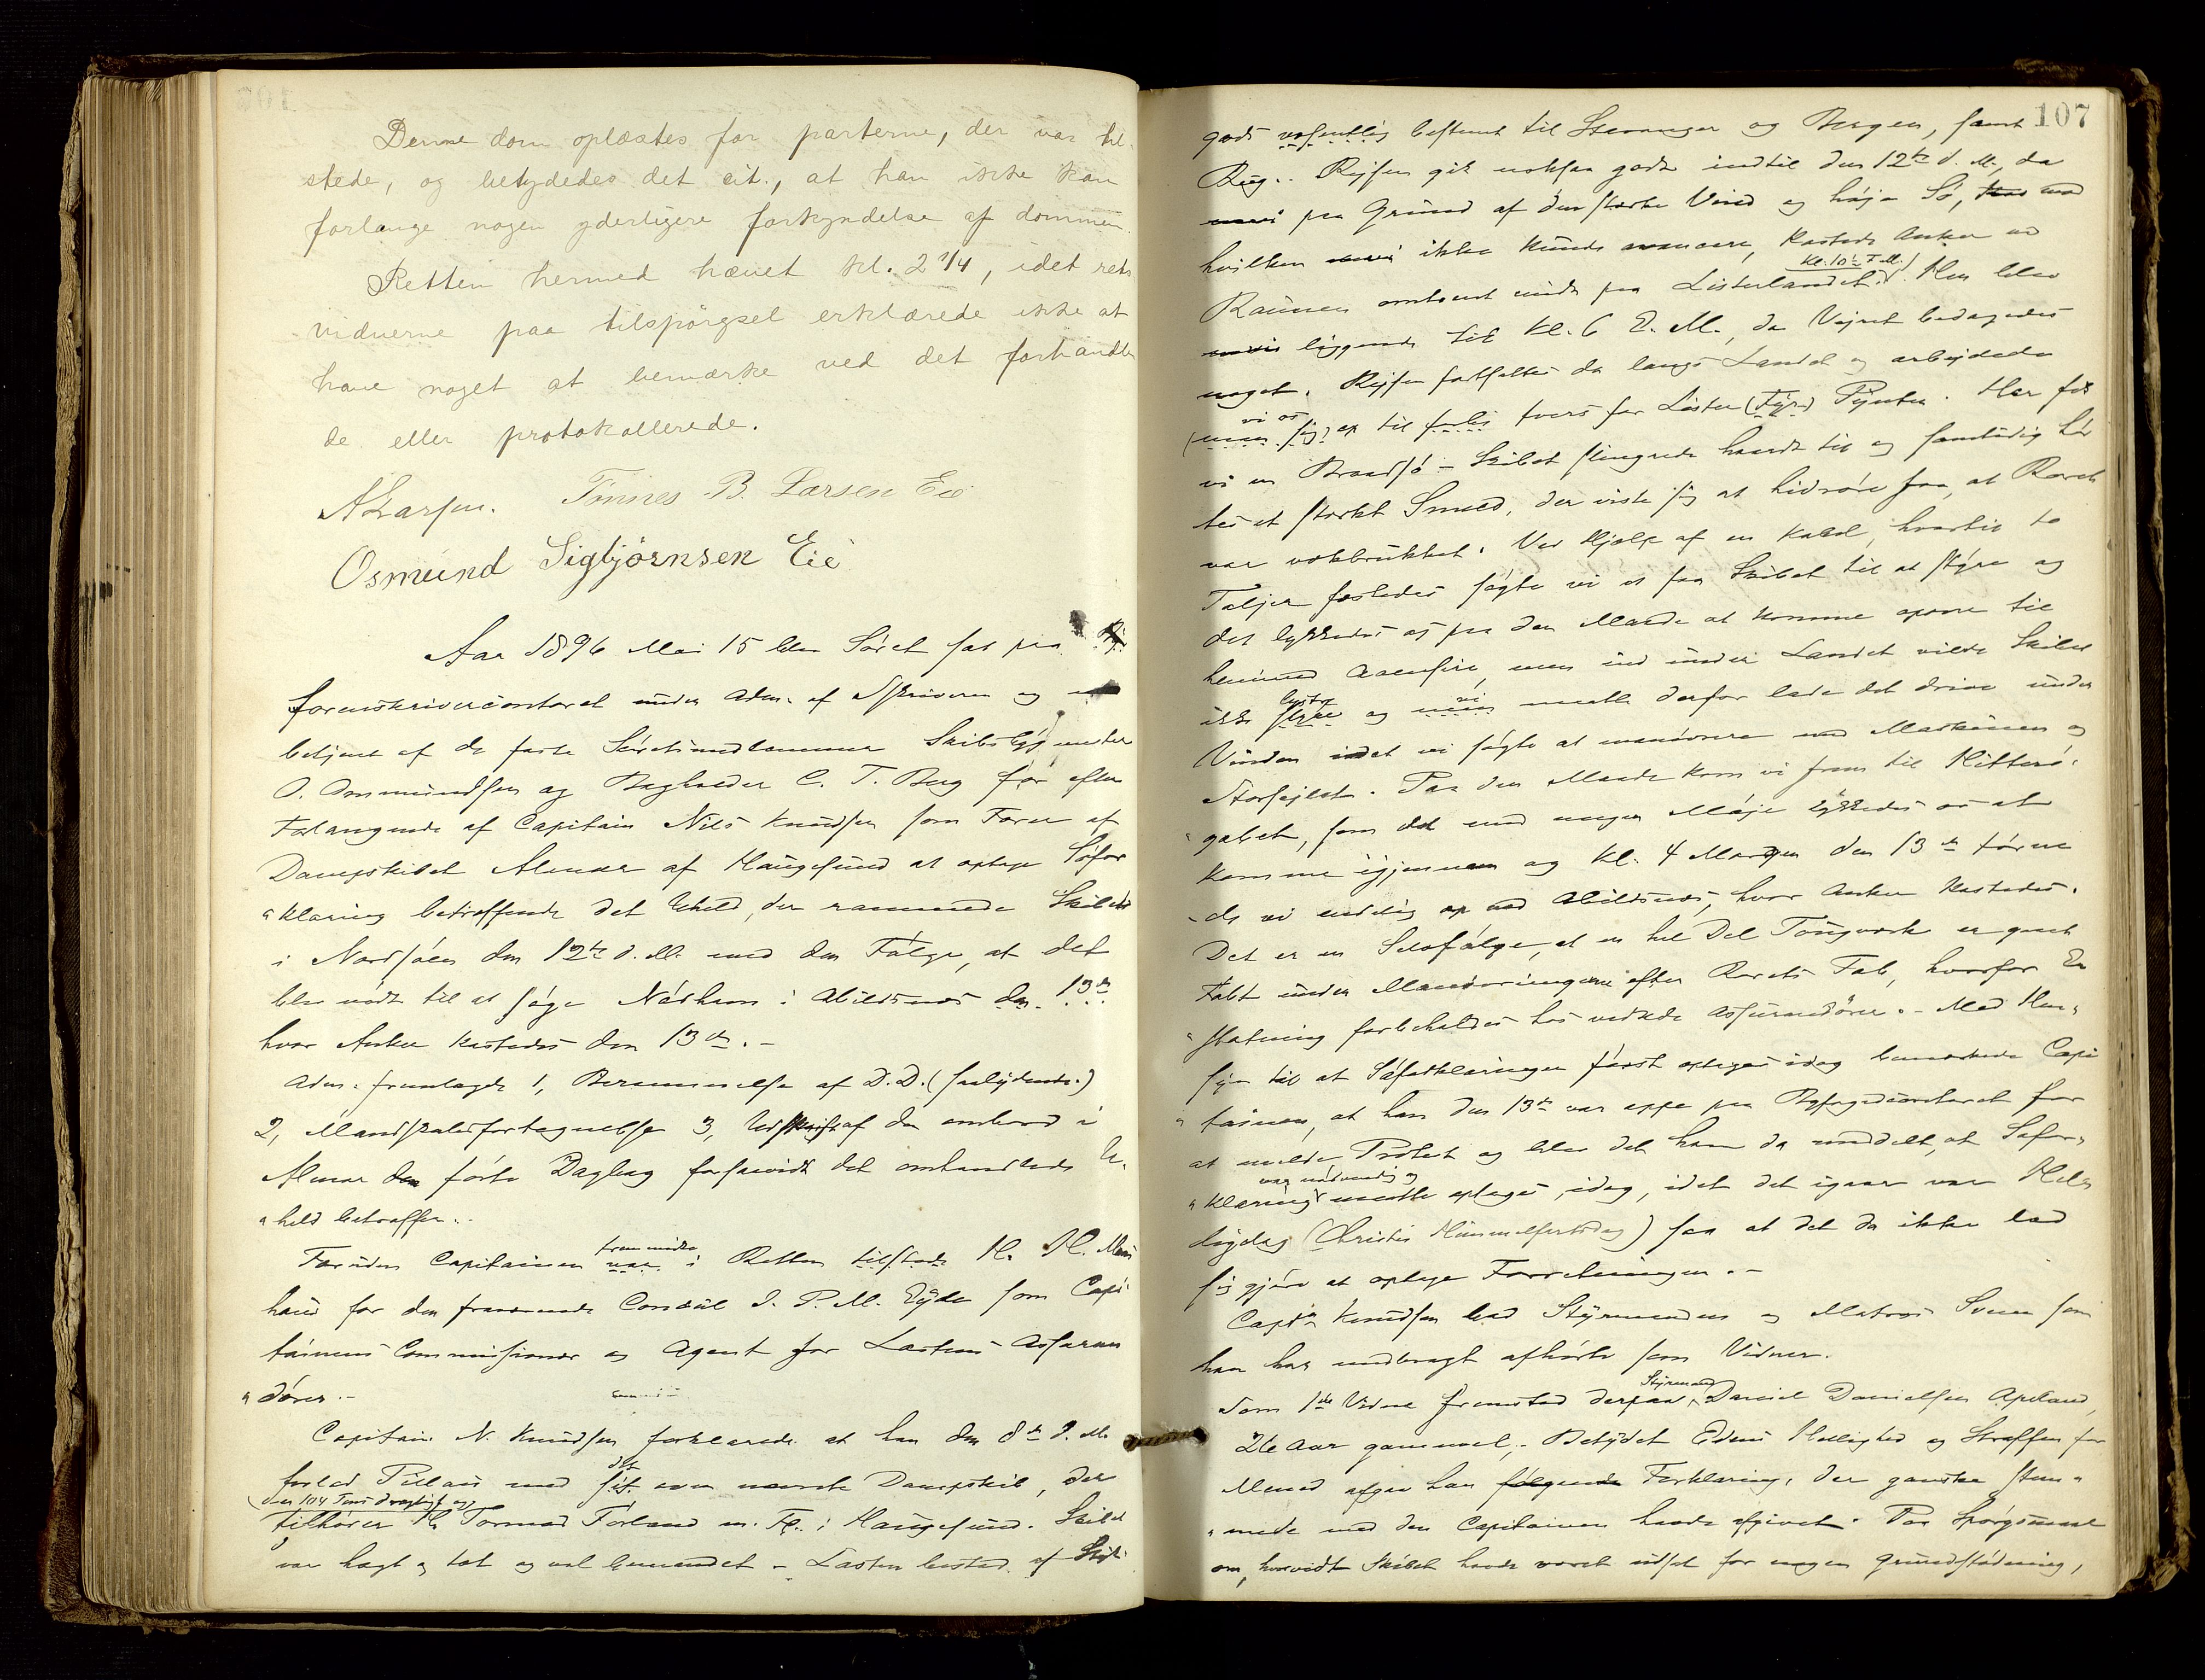 Denne dom oplæstes for parterne, der var til-
stede, og betydedes det cit., at han ikke kan
forlange nogen yderligere forkyndelse af dommen.
Retten hermed hævet kl. 2 1/4, idet rets
vidnerne paa tilspørgsel erklærede ikke at
have noget at bemærke ved det forhandle
de eller protokollerede.
ALarsen. Tønnes B. Larsen Eie
Osmund Sigbjørnsen Eie
Aar 1896 Mai 15 blev Søret sat paa
Sorenskrivercontoret under Adm. af Skriveren og
betjent af de faste Søretsmedlemmer Skibsbygmester
O. Ommundsen og Baghveder C. T. Berg for efter
Forlangende af Capitain Nils Knudsen som Fører af
Dampskibet Almar af Haugesund at optage Søfor
"klaring betræffende det Uheld, der rammede Skibet
i Nordsøen den 12te d. M. med den Følge, at det
blev nødt til at søge Nødhavn i Abildsnes den 13de
hvor Anker kastedes den 13de. -
Adm. fremlagde 1, Berammelse af D. D. (saalydende.)
2, Mandskabsfortegnelse 3, Udskrift af den ombord i
Almar den førte Dagbog forsaavidt det omhandlede U-
"held betræffer. -
Foruden Capitainen var fremmødte i Retten tilstede H. H.
haus for den fraværende Consul J. P. M. Eyde som Capi-
tainens Commissionær og Agent for Lastens Assuran
"dører. -
Capitain N. Knudsen forklarede at han den 8de d. M.
forlod Pillau med sit det ovennævnte Dampskib, der
(der 104 Tons drægtigt og)
tilhører Tormod Førland m. Fl. i Haugesund. Skibet
var tægt og tæt og vel bemandet - Lasten bestod af Styk-
107
gods væsentlig bestemt til Stavanger og Bergen, samt
Rug. - Rejsen gik noksaa godt indtil den 12te d. M., da
paa Grund af den stærke Vind og høje Sø, mod
hvilken ikke kunde avancere, kastede Anker ved
Kl. 10 1/2 F.M.)
Raunen omtrent midt paa Listerlandet. Her blev
liggende til Kl. 6 E. M., da Vejret bedagedes
noget. Rejsen fortsattes da langs Landet og arbejdede
vi os
(man sig) op til forbi tvers for Lister (Fyr) Pynten. Her fik
vi en Braadsø - Skibet slingrede haardt til og samtidig hør
tes et stærkt Smeld, der viste sig at hidrøre fra, at Roret
var vækbrukket. Ved Hjælp af en Kabel, hvortil to
Taljer fæstedes søgte vi at faa Skibet til at styre og
det lykkedes os paa den Maade at komme opover til
henimod Aaensire, men ind under Landet vilde Skibet
lystre vi
ikke styre og man maatte derfor lade det drive under
Vinden idet vi søgte at manøvrere med Maskinen og
Storsejlet. Paa den Maade kom vi frem til Hitterø-
"gabet, som det med megen Møje lykkedes os at
komme igjennem og Kl. 4 Morgen den 13de tørne
-de vi endelig op ved Abildsnes, hvor Anker kastedes.
Det er en Selvfølge, at en hel Del Tougværk er gaaet
tabt under Manøvreringerne efter Rorets Tab, hvorfor Er
"statning forbeholdes hos vedkde Assurandører. - Med Hen-
syn til at Søforklaringen først optages idag bemærkede Capi
"tainen, at han den 13de var oppe paa Byfogedcontoret for
at melde Protest og blev det ham da meddelt, at Søfor-
var nødvendig og
"klaring maatte optages idag, idet det igaar var Hel-
ligdag (Christi Himmelfartsdag) saa at det da ikke lod
sig gjøre at optage Forretningen. -
Captn Knudsen bad Styrmanden og Matros Svend som
han har medbragt afhørte som Vidner.
Styrmand
Som 1ste Vidne fremstod derpaa Daniel Danielsen Apeland,
26 Aar gammel, - Betydet Edens Hellighed og Straffen for
Mened afgav han følgende Forklaring, der ganske stem-
"mede med den Capitainen havde afgivet. Paa Spørgsmaal
om, hvorvidt Skibet havde været udsat for nogen Grundstødning,